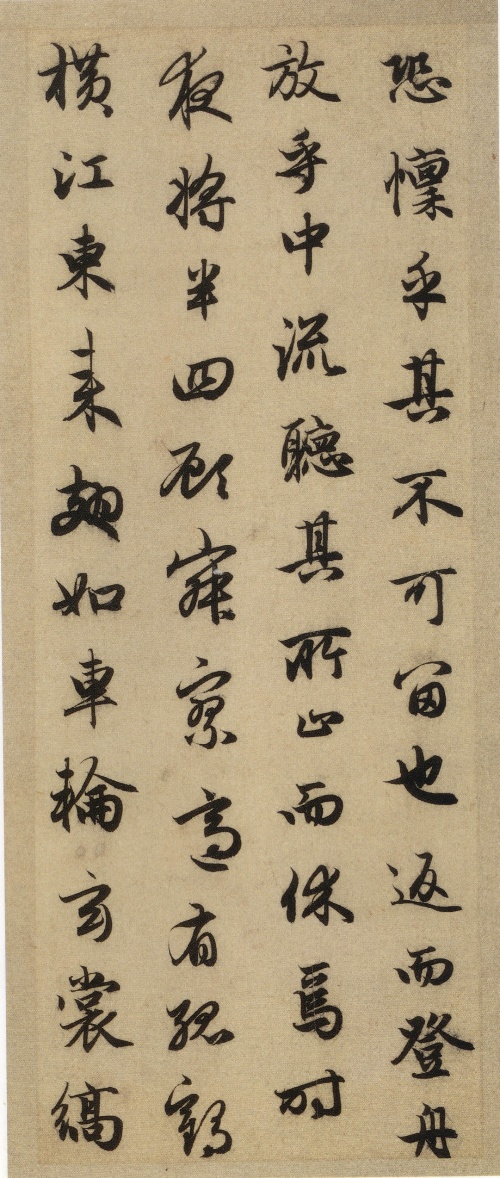 恐懔乎其不可留也返而登舟
放乎中流聽其所止而休焉时
夜将半四顾寂寥適有孤鶴
横江東来翅如車輪玄裳縞